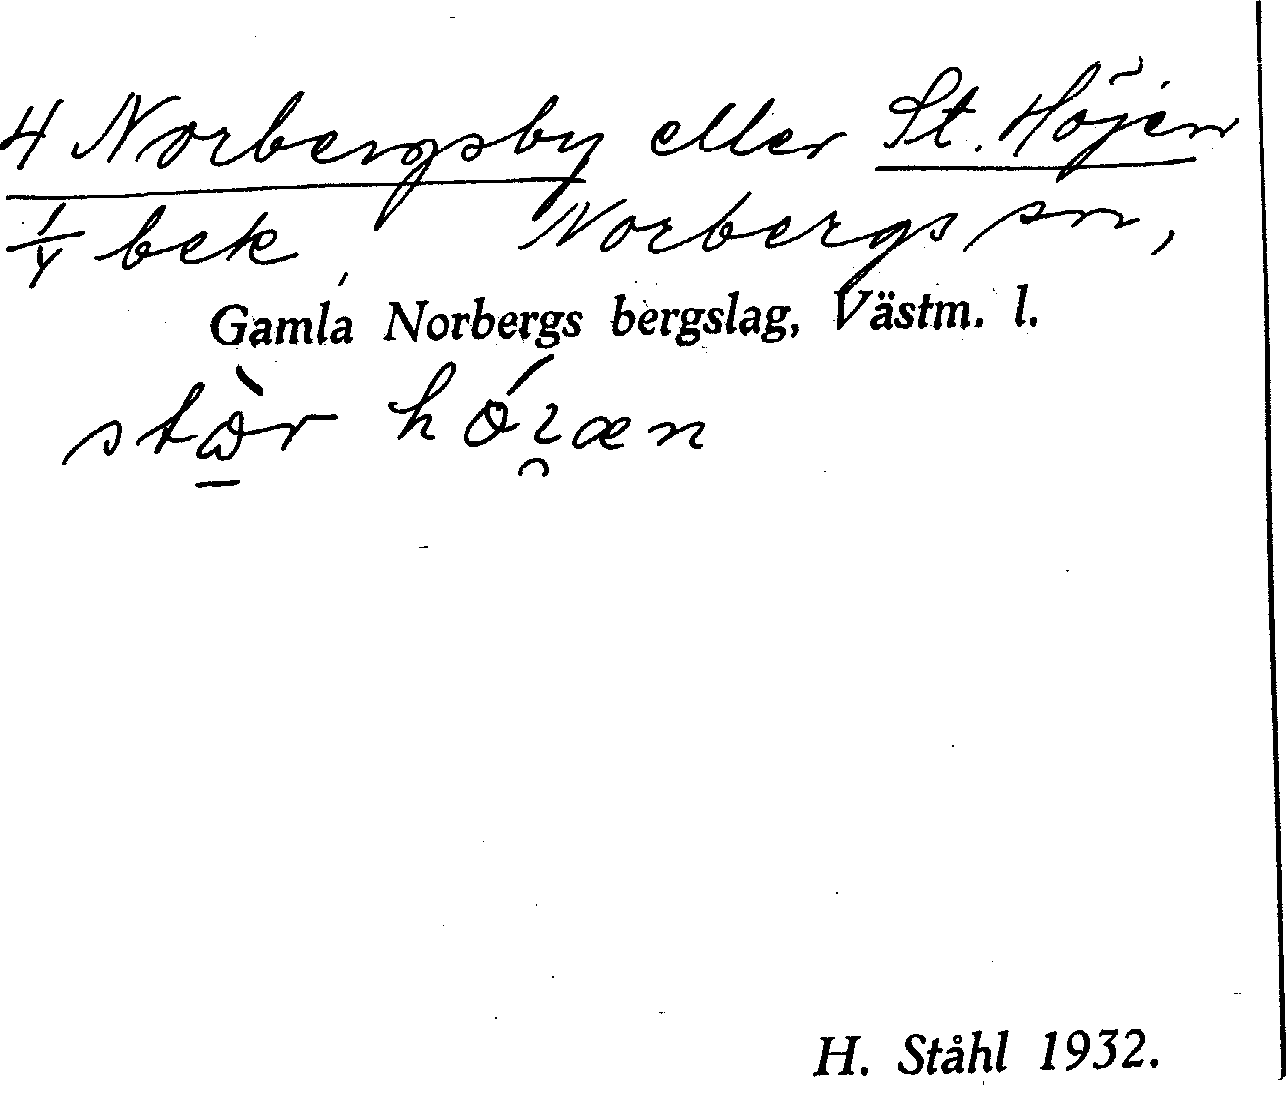 4 Norbergsby eller St. Höjen
1/4 bek Norbergs sn,
Gamla Norbergs bergslag, Västm. l.
H. Ståhl 1932.